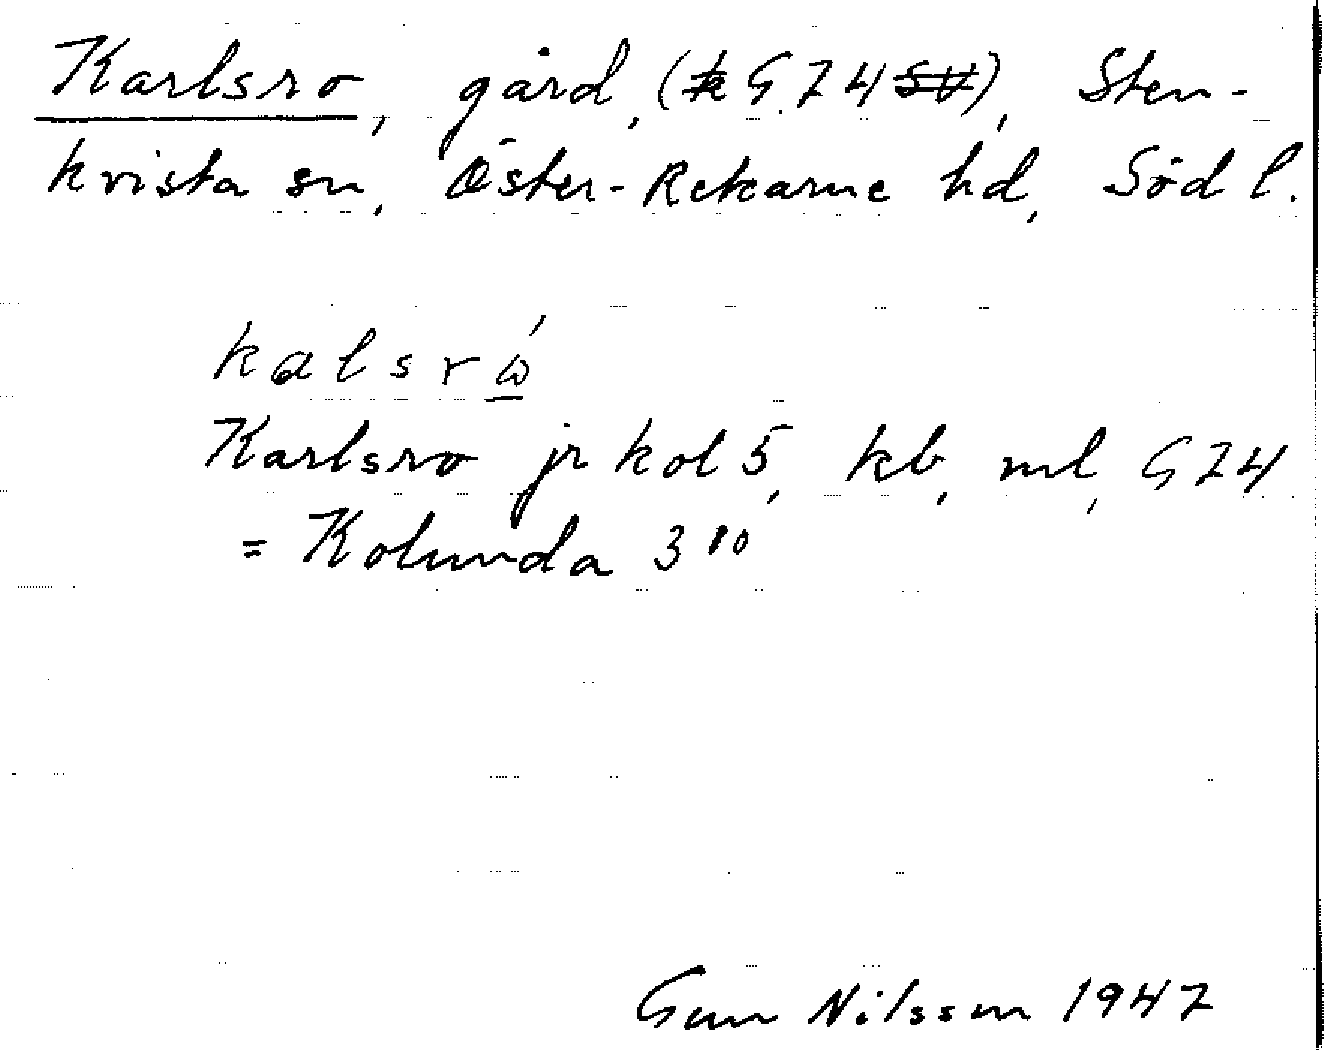 Karlsro, gård, (G 74), Sten-
kvista sn, Öster-Rekarne hd, Södl.
kalsró
Karlsro jr kol 5, kb, ml, G 74
= Kolunda 3¹⁰
Gun Nilsson 1947